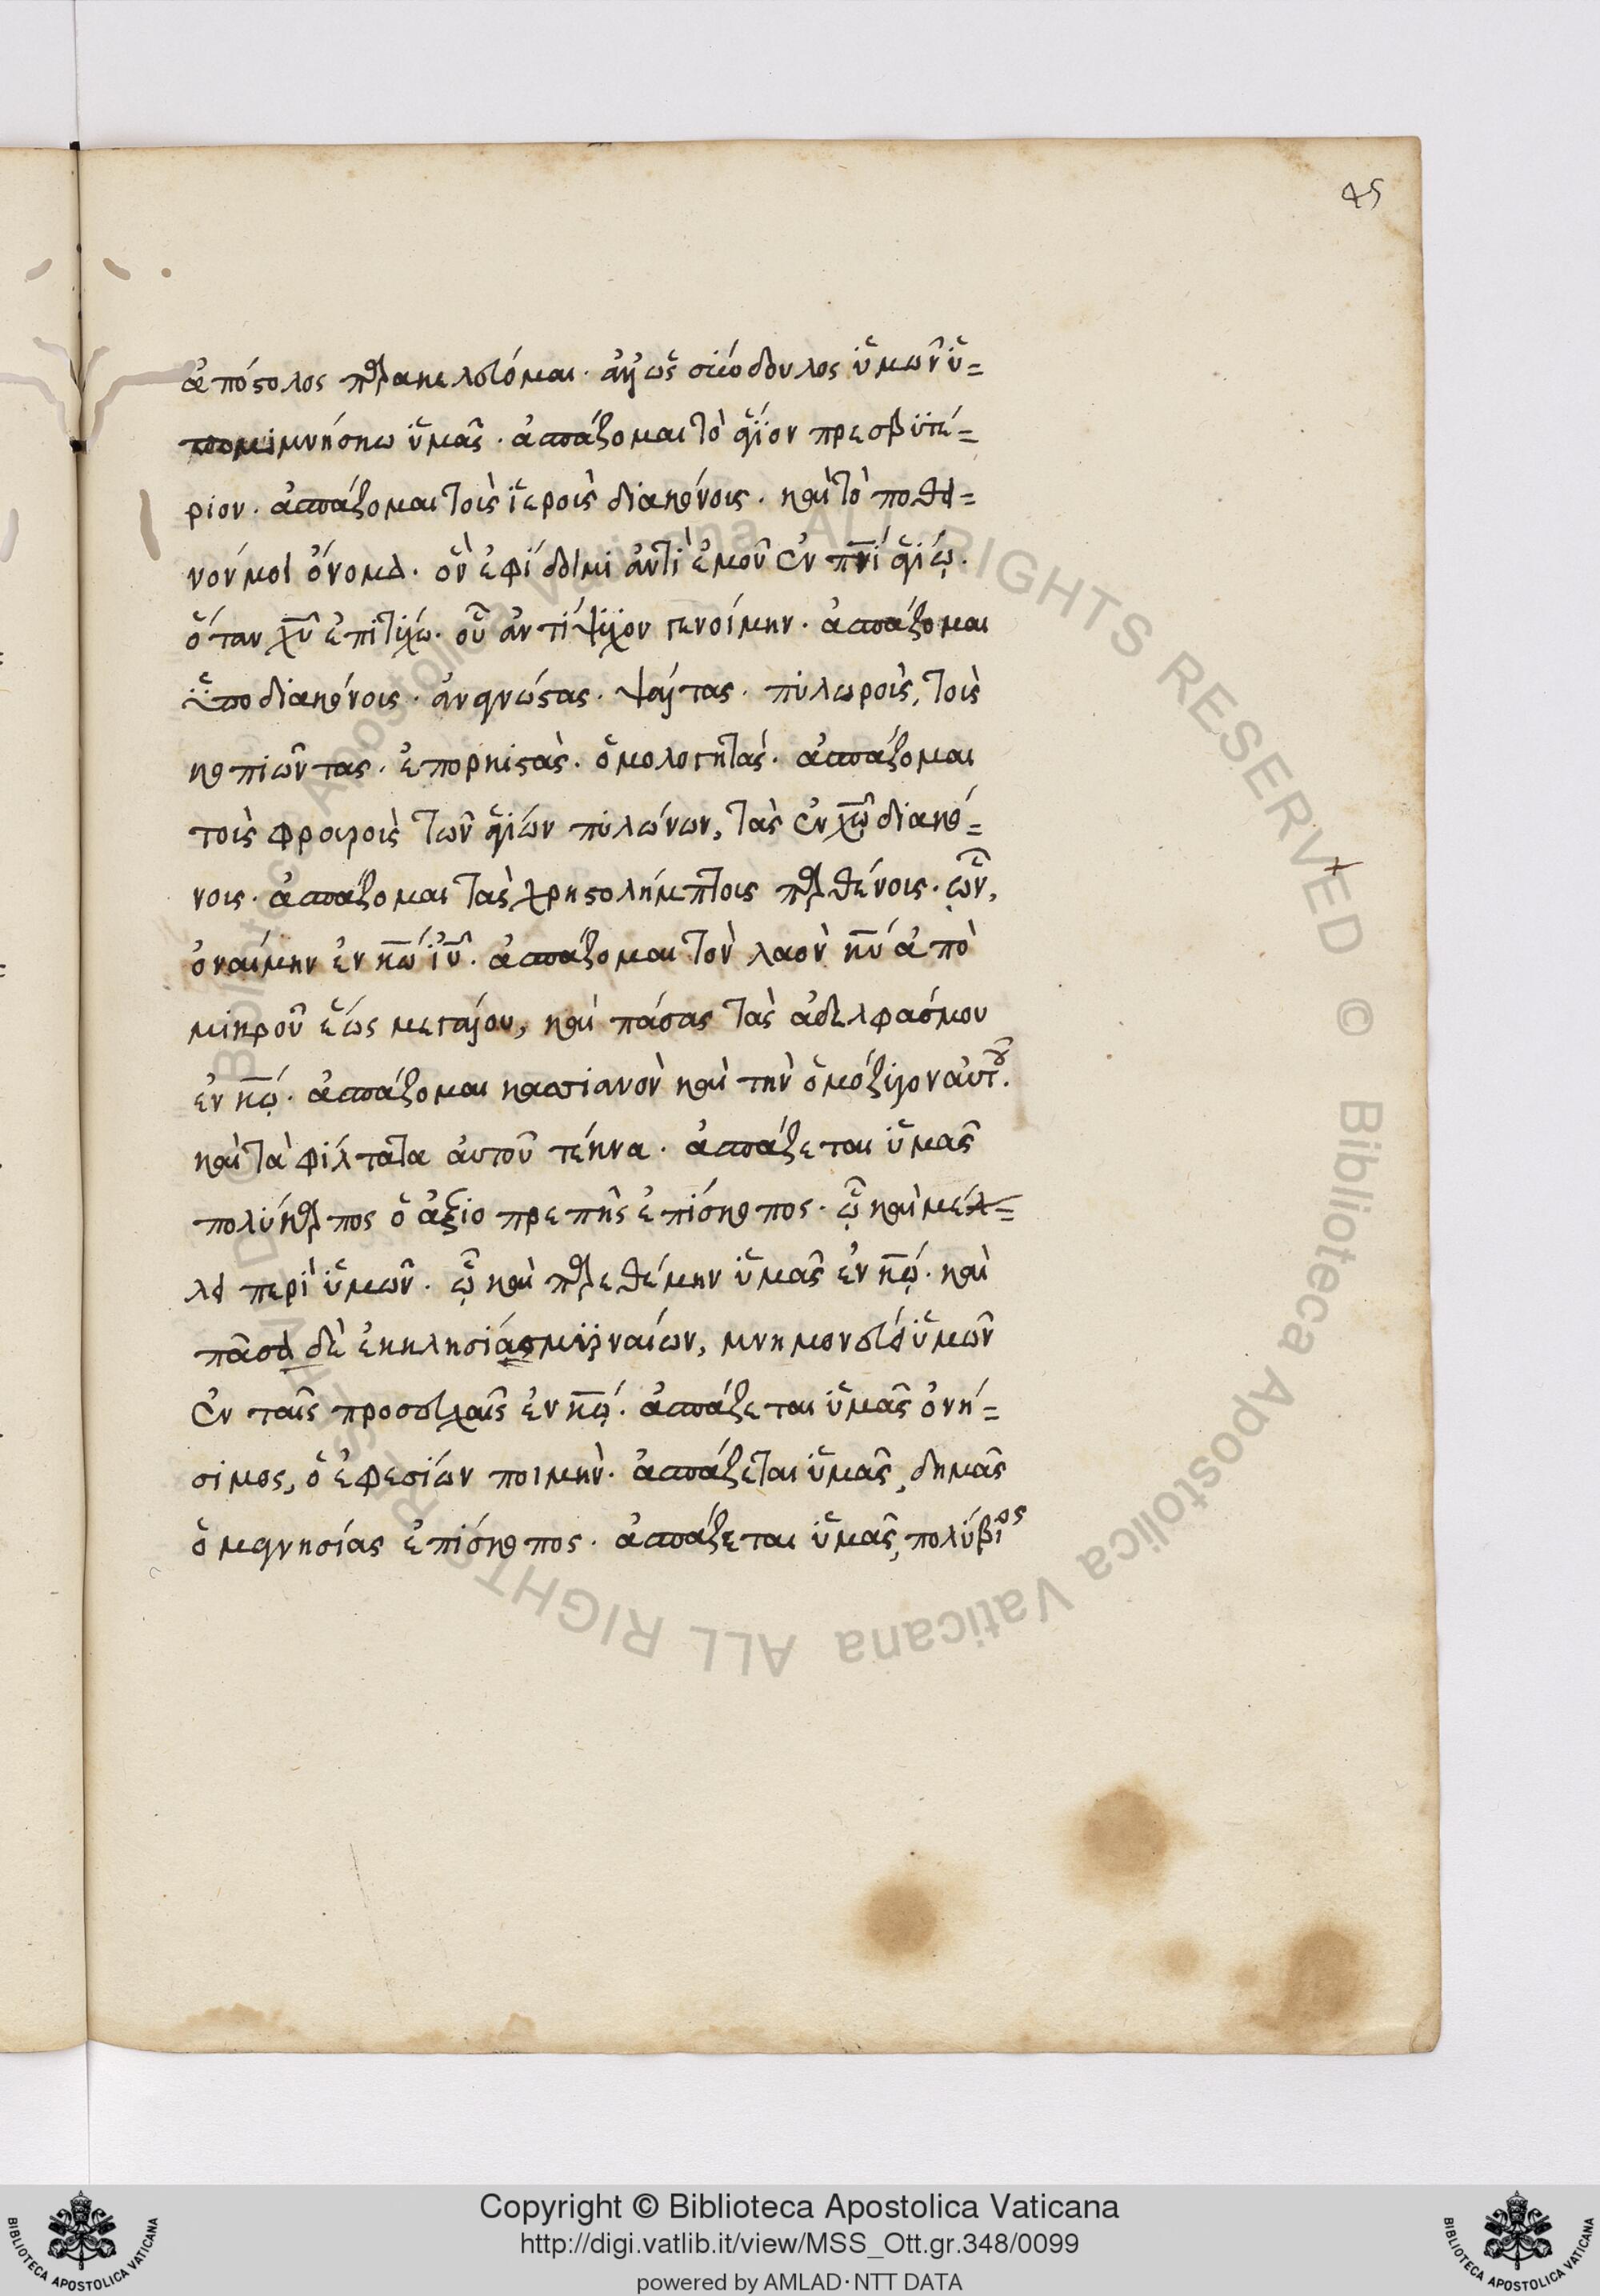 45
ἀπόστολος παρακελεύομαι· ἀλλ' ὡς σύνδουλος ὑμῶν ὑ=
πομιμνήσκω ὑμᾶς· ἀσπάζομαι τὸ ἅγιον πρεσβυτέ=
ριον· ἀσπάζομαι τοὺς ἱεροὺς διακόνους· καὶ τὸ ποθει=
νόν μοι ὄνομα· ὃν ἐφίδοιμι ἀντὶ ἐμοῦ ἐν πνι ἁγίῳ·
ὅταν χυ ἐπιτύχω· οὗ ἀντίψυχον γενοίμην· ἀσπάζομαι
ὑποδιακόνους· ἀναγνώστας· ψάλτας· πυλωρούς, τοὺς
κοπιῶντας· ἐπορκιστάς· ὁμολογητάς· ἀσπάζομαι
τοὺς φρουροὺς τῶν ἁγίων πυλώνων, τὰς ἐν χω διακό=
νους· ἀσπάζομαι τὰς χρηστολήμπτους παρθένους· ὧν,
ὀναίμην ἐν κω ιυ· ἀσπάζομαι τὸν λαὸν κυ ἀπὸ
μικροῦ ἕως μεγάλου, καὶ πάσας τὰς ἀδελφάς μου
ἐν κω· ἀσπάζομαι κασσιανὸν καὶ τὴν ὁμόζυγον αὐτοῦ·
καὶ τὰ φίλτατα αὐτοῦ τέκνα· ἀσπάζεται ὑμᾶς
πολύκαρπος ὁ ἀξιοπρεπὴς ἐπίσκοπος· ᾧ καὶ μέλ=
λει περὶ ὑμῶν· ᾧ καὶ παρεθέμην ὑμᾶς ἐν κω· καὶ
πᾶσα δὲ ἐκκλησία σμυρναίων, μνημονεύει ὑμῶν
ἐν ταῖς προσευχαῖς ἐν κω· ἀσπάζεται ὑμᾶς ὀνή=
σιμος, ὁ ἐφεσίων ποιμήν· ἀσπάζεται ὑμᾶς, δημᾶς
ὁ μαγνησίας ἐπίσκοπος· ἀσπάζεται ὑμᾶς, πολύβιος
Copyright © Biblioteca Apostolica Vaticana
http://digi.vatlib.it/view/MSS_Ott.gr.348/0099
powered by AMLAD·NTT DATA